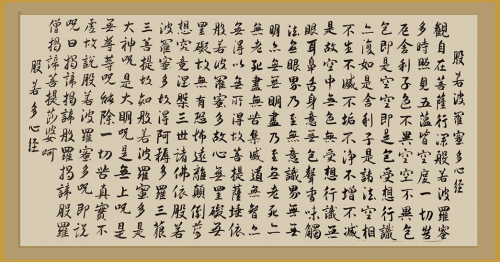 般若波羅蜜多心經
觀自在菩薩行深般若波羅蜜
多時照見五蘊皆空度一切苦
厄舍利子色不異空空不異色
色即是空空即是色受想行識
亦復如是舍利子是諸法空相
不生不滅不垢不淨不增不減
是故空中無色無受想行識無
眼耳鼻舌身意無色聲香味觸
法無眼界乃至無意識界無無
明亦無無明盡乃至無老死亦
無老死盡無苦集滅道無智亦
無得以無所得故菩提薩埵依
般若波羅蜜多故心無罣礙無
罣礙故無有恐怖遠離顛倒夢
想究竟涅槃三世諸佛依般若
波羅蜜多故得阿耨多羅三藐
三菩提故知般若波羅蜜多是
大神呪是大明呪是無上呪是
無等等呪能除一切苦真實不
虛故說般若波羅蜜多呪即說
呪曰揭諦揭諦般羅揭諦般羅
僧揭諦菩提莎婆呵
般若多心經